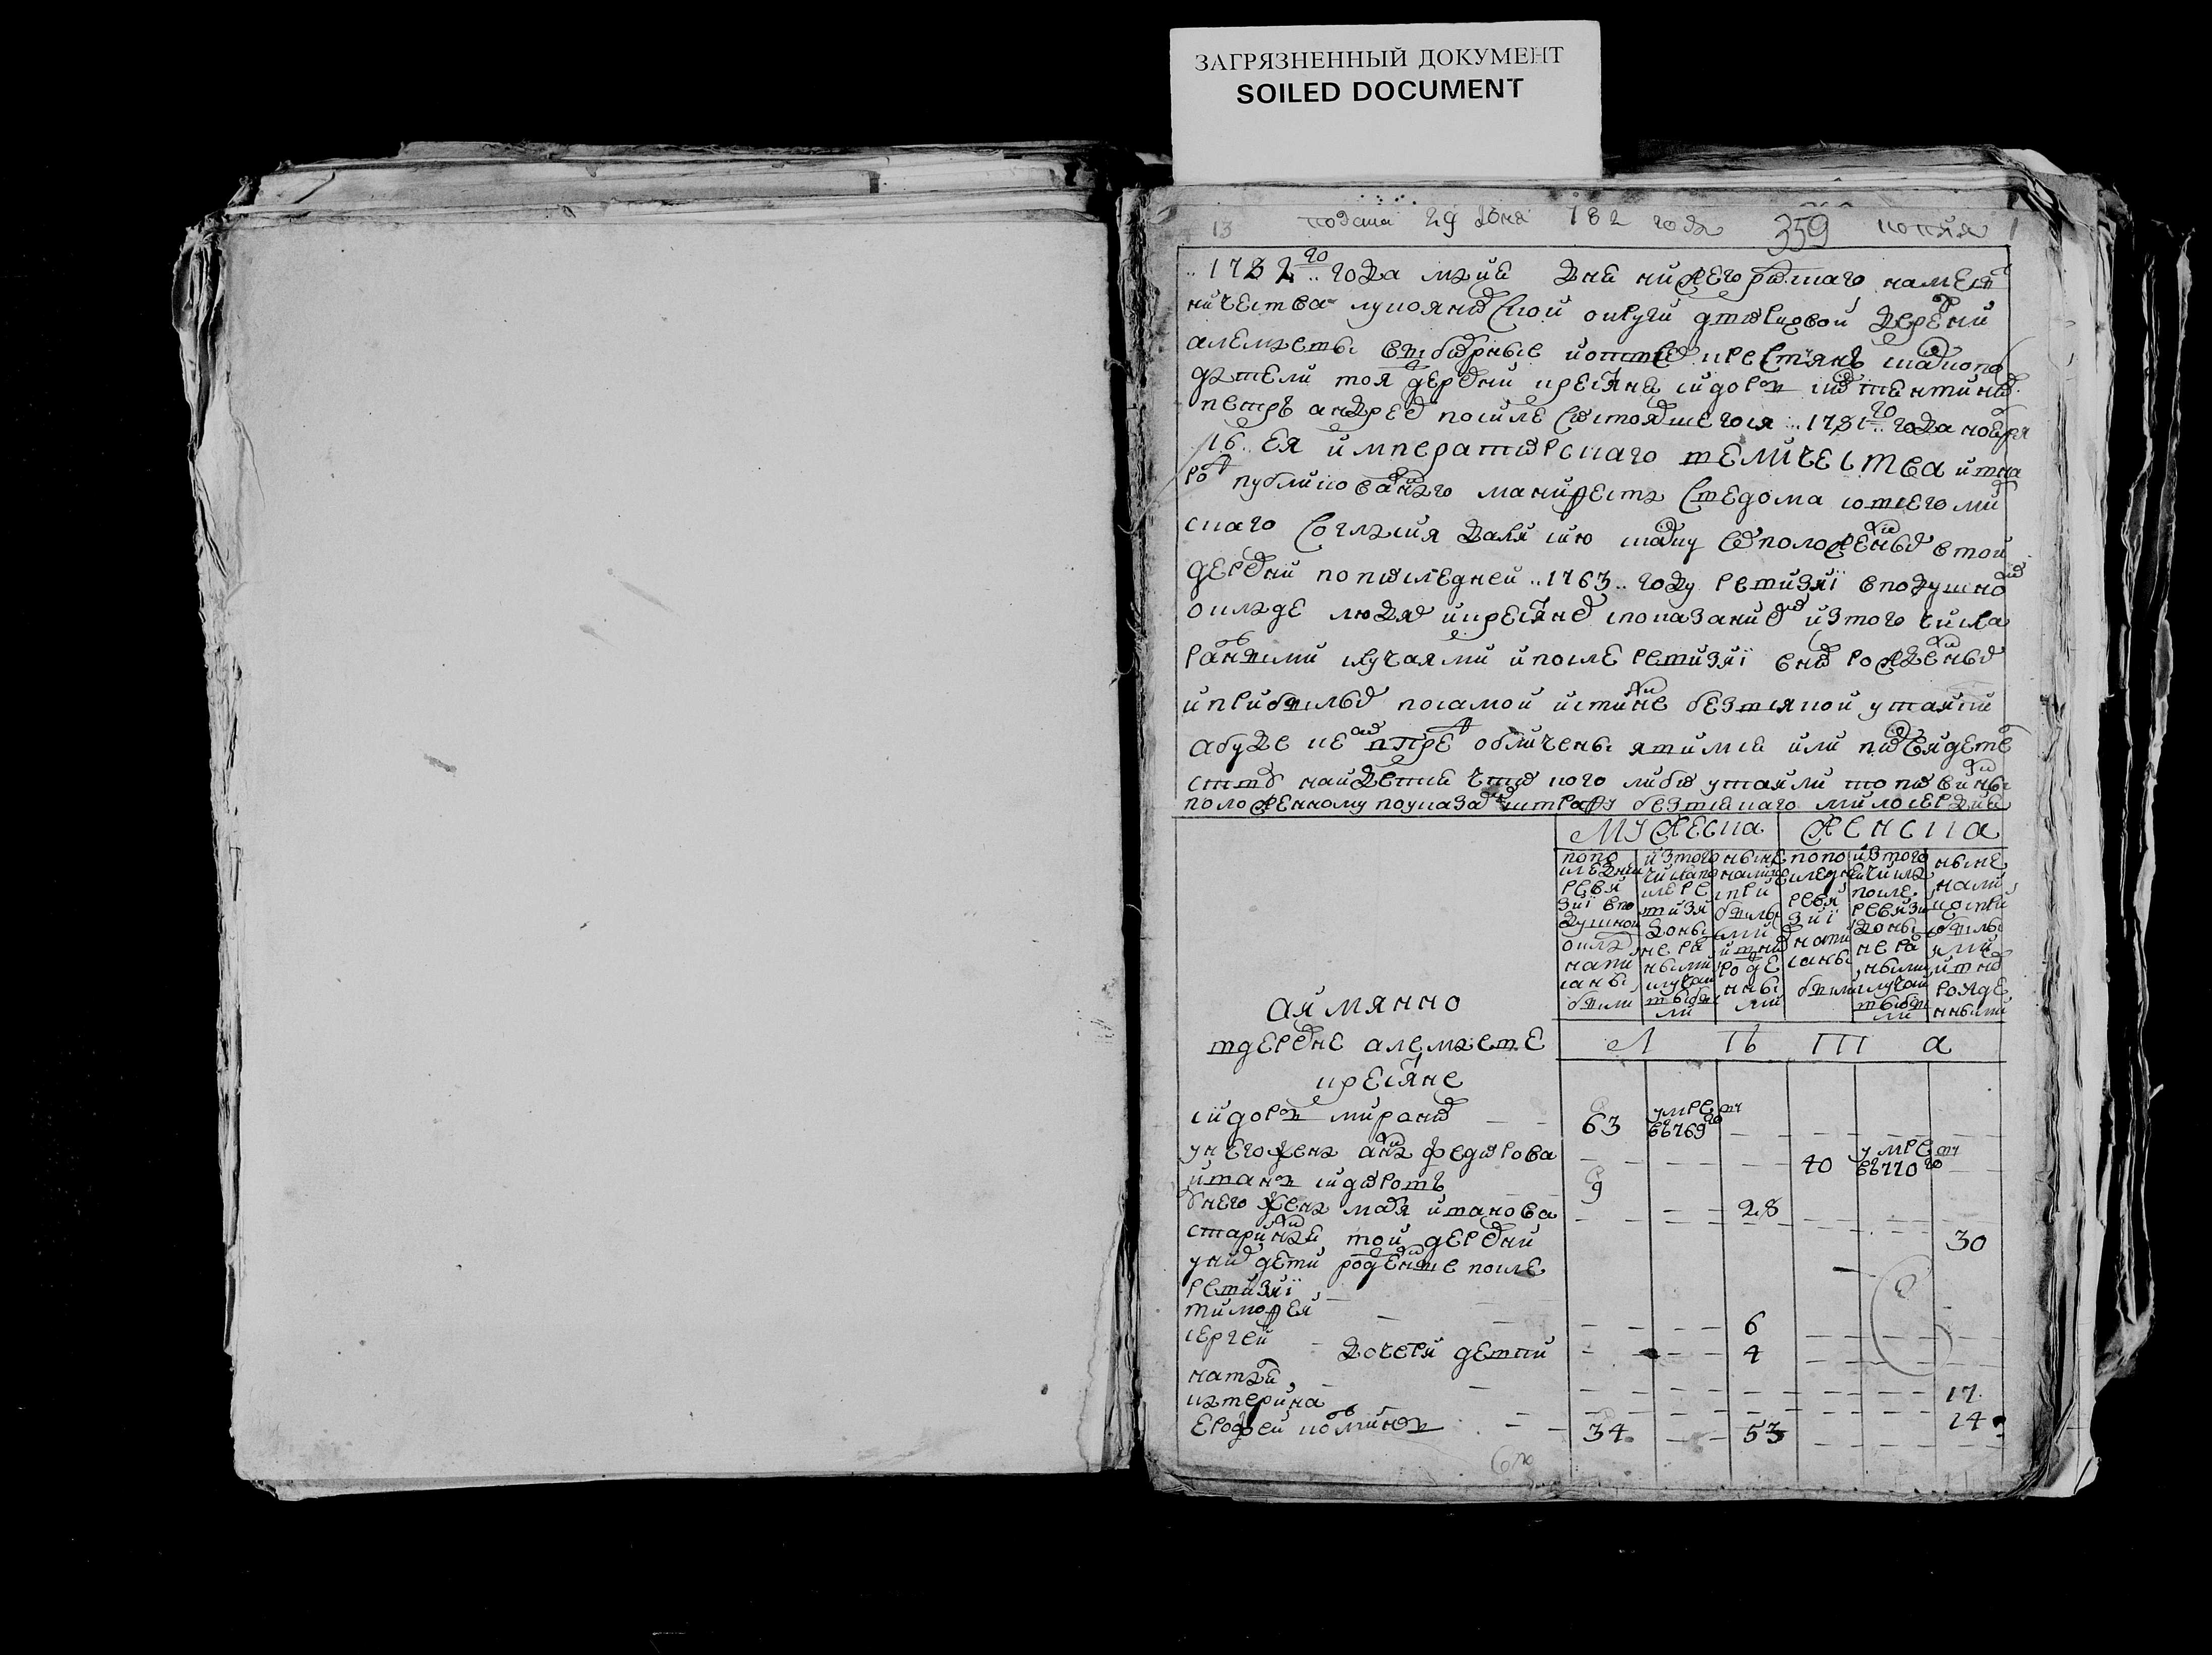 ЗАГРЯЗНЕННЫЙ ДОКУМЕНТ
SOILED DOCUMENT
13 подана 29 июня 782 года 359 копия
1782го года маия дня нижегороцкаго намест
ничества лукояновской округи деревни
алемаевы выборные крестьянъ
тоя деревни крестьяне сидоров
петръ андреев после состоявшегося 1781го года ноября
16 ея императорскаго величества и в на
род публикованнаго манифеста с ведома и всего мир
скаго согласия дали сию скаску о положенных в той
деревни по последней 1763 году ревизии в подушной
окладе людях и крестьянех с показанием из того числа
разными случаями и после ревизии вновь рожденных
и прибылых по самой истинне без всякой утайки
а буде впред обличены явимся или по свидетель
ству найдетца что кого либо утаили то повинны
положенному по указам штрафу без всякаго милосердия
мужеска женска
по по
следней
реви
зии в по
душной
оклад
напи
саны
были
из того
числа по
сле ре
визии
разными
случаи
выбы
ли
ныне
налицо
с при
былы
ми
и вновь
рожде
нны
ми
по по
следней
реви
зии
напи
саны
были
из того
числа
после
ревизии
разными
случаи
выбы
ли
ныне
нали
цо с при
былы
ми
и внов
рожде
нными
аимянно
в деревне алемаеве
крестьяне
л ѣ т а
сидоръ миронов 63 умре въ 769го
у него жена анна федорова 40 умре въ 770го
иванъ сидоровъ 9 28
у него жена марья иванова 30
старинная той деревни
у них дети рожденные после
ревизии
тимофей 6
сергей 4
дочери девки
наталья 17
катерина 14
ерофей козминъ 34 53